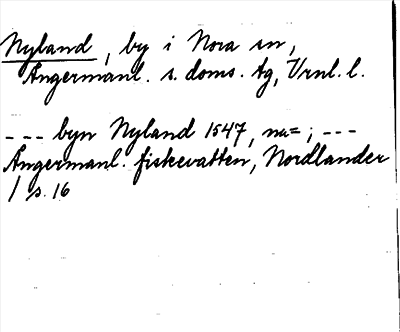 Nyland, by i Nora sn,
Ångermanl. s. doms. tg, Vrnl. l.
--- byn Nyland 1547, nu=; ---
Ångermanl. fiskevatten, Nordlander
/ s. 16